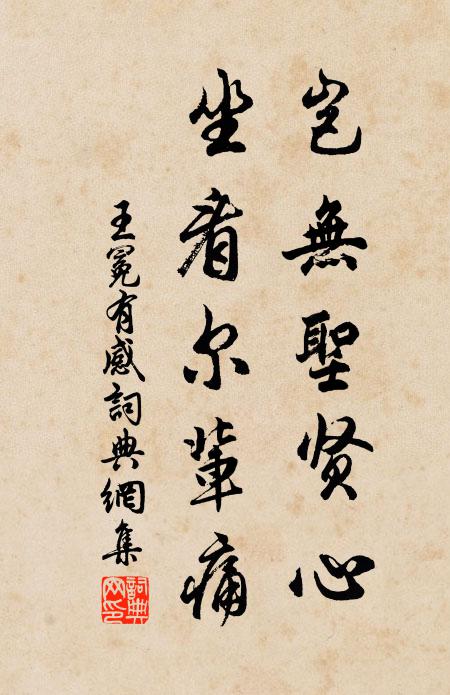 岂無聖贤心
坐看尔輩痛
王冕有感詞典網集
詞典網印